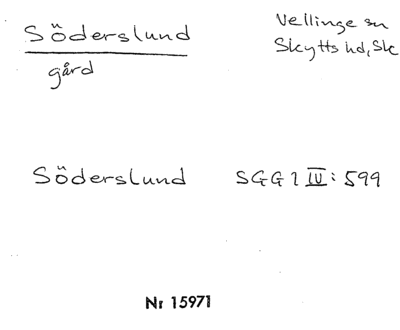 Söderslund
Vellinge sn
gård
Skytts hd, Sk
Söderslund SGG 1 IV: 599
Nr 15971